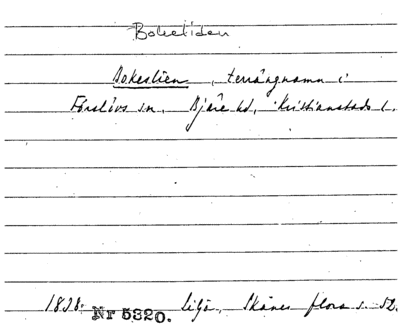 Bokeliden
Bokeslien, terrängnamn i
Förslövs sn, Bjäre hd, Kristianstads l.
1838. Nr 5320. Lilja, Skånes flora s. 52.